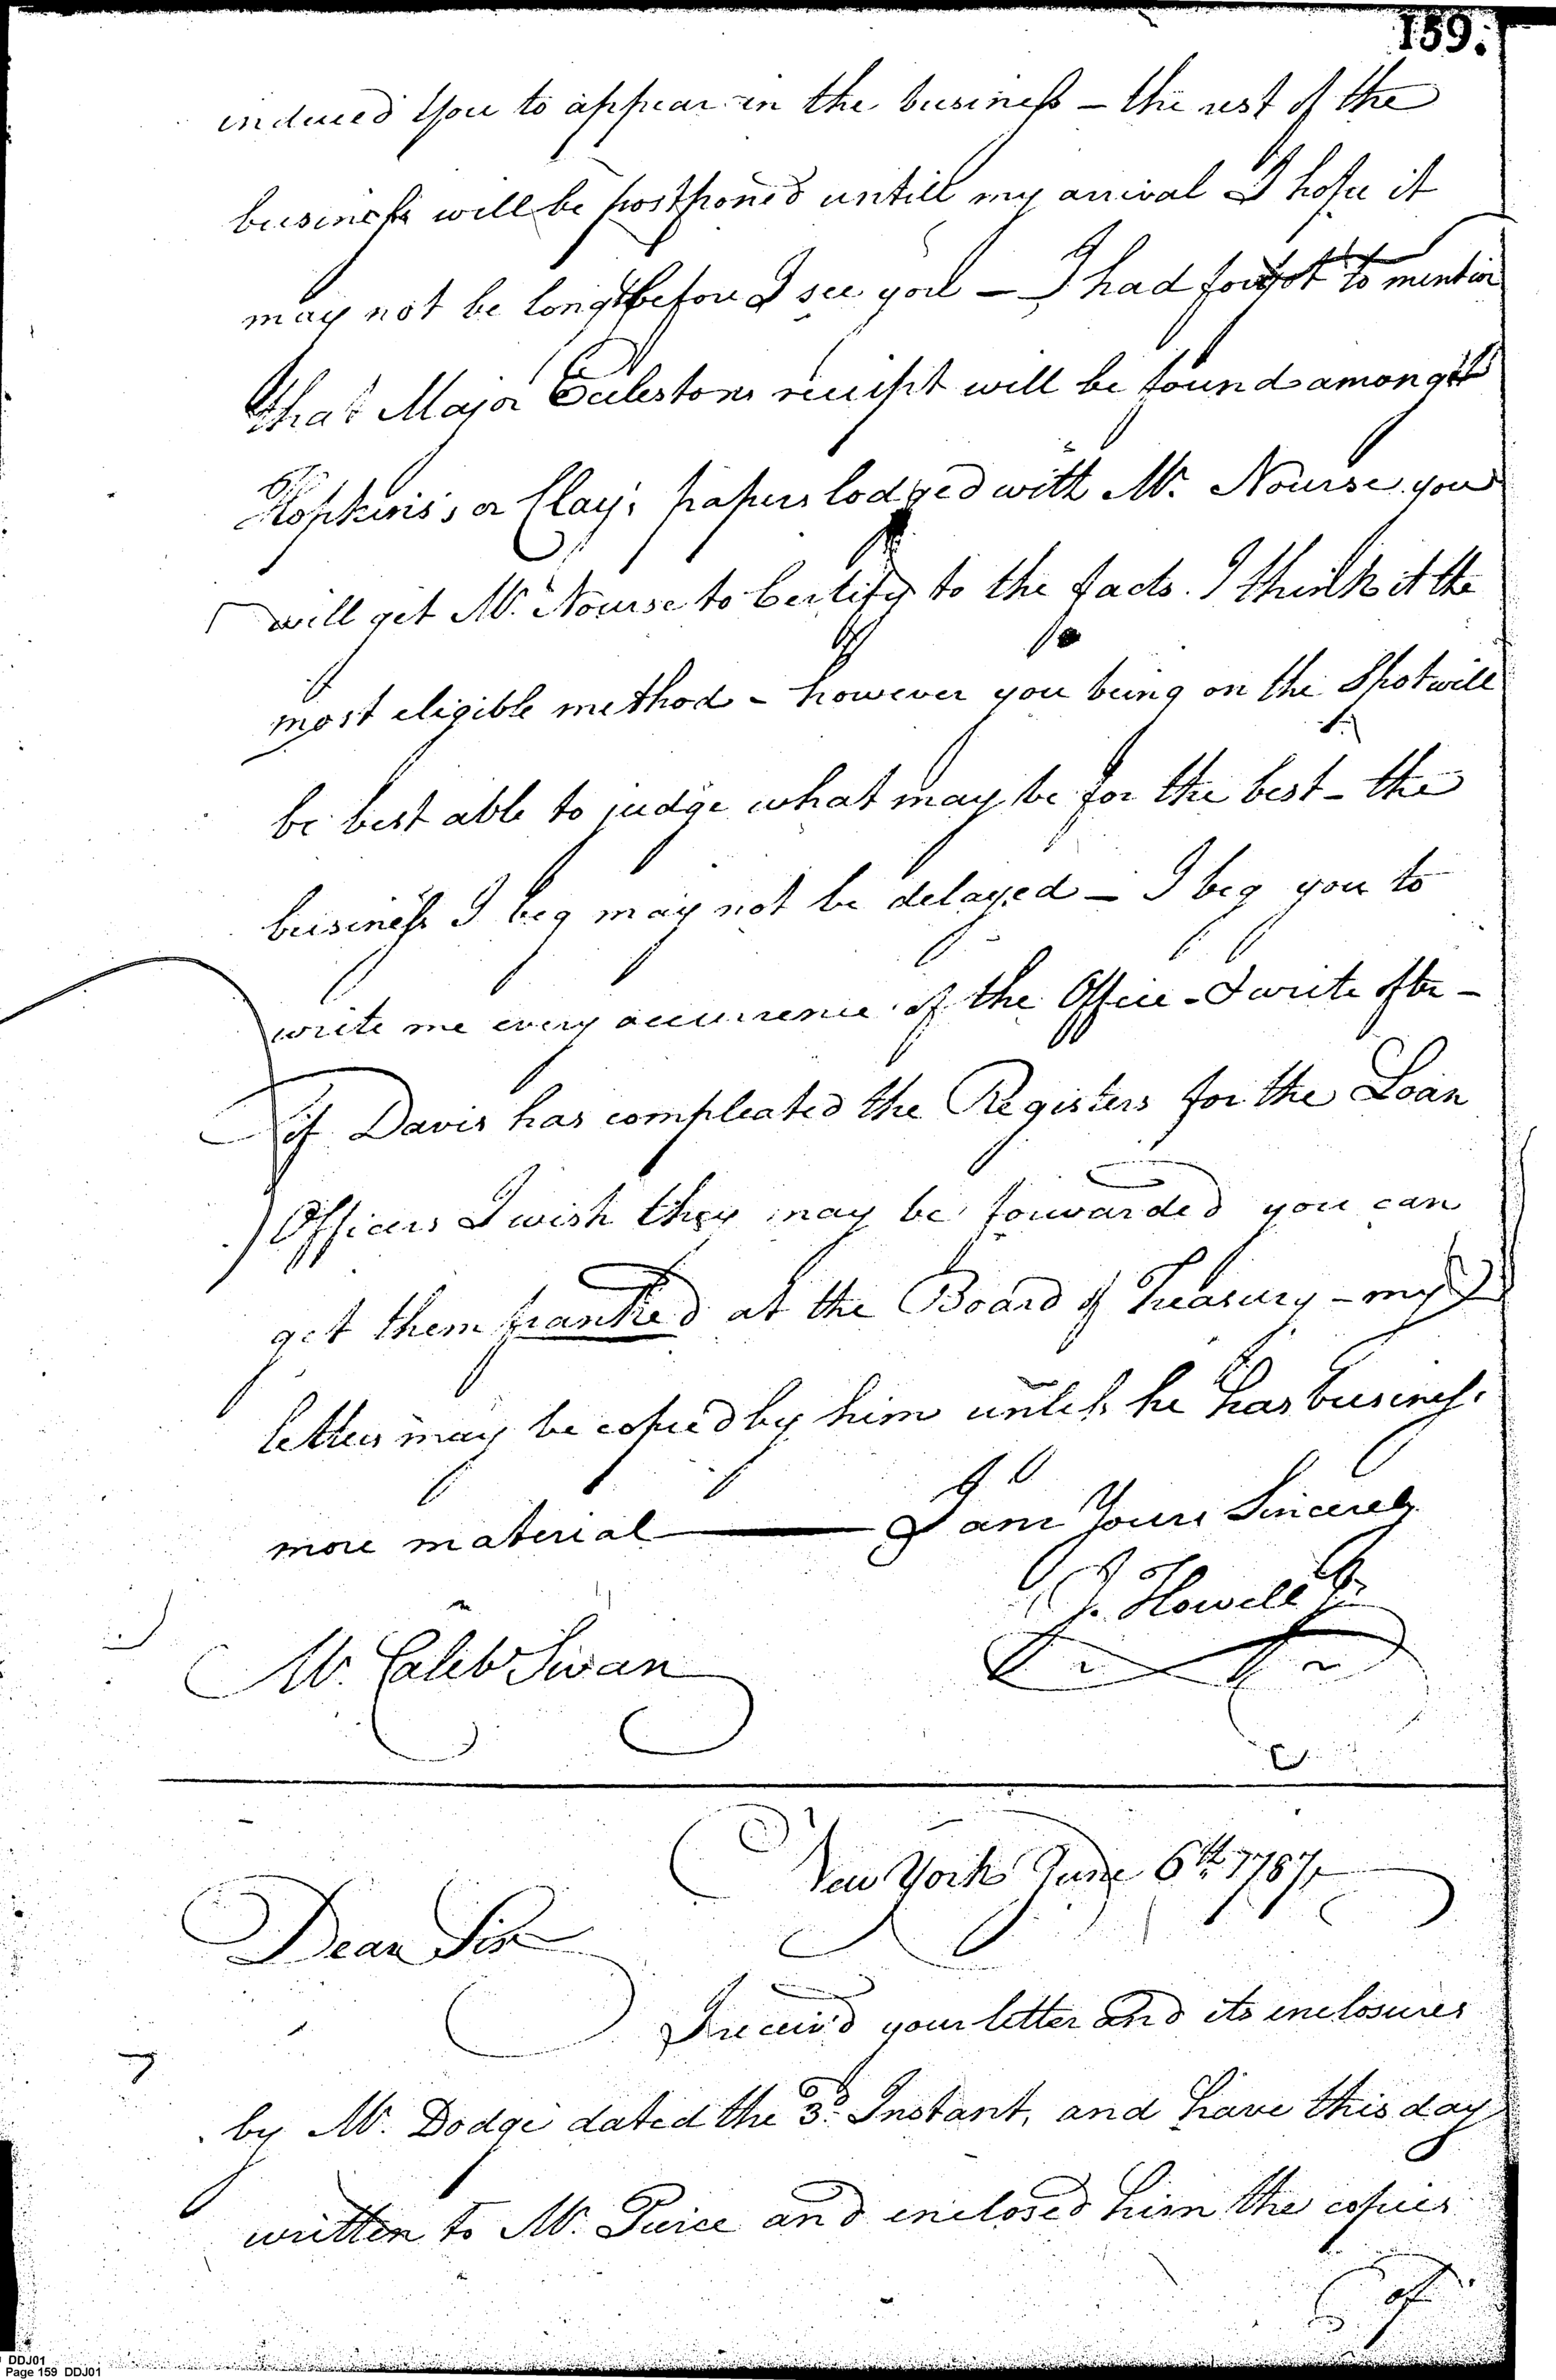 159.
induced you to appear in the business – the rest of the
business will be postponed untill my arrival I hope it
may not be long before I see you – I had forgot to mention
that Major Ecclestons receipt will be found amongst
Hopkins's or Clay's papers lodged with Mr. Nourse you
will get Mr. Nourse to Certify to the facts. I think it the
most eligible method – however you being on the Spot will
be best able to judge what may be for the best – the
business I beg may not be delayed – I beg you to
write me every occurrence of the Office – I write often –
if Davis has compleated the Registers for the Loan
Officers I wish they may be forwarded you can
get them franked at the Board of Treasury – my
letters may be copied by him unless he has business
more material — I am Yours Sincerely
J. Howell Jr.
Mr. Caleb Swan
New York June 6th 1787,
Dear Sir
I receiv'd your letter and its enclosures
by Mr. Dodge dated the 3d. Instant, and have this day
written to Mr. Pierce and enclosed him the copies
of
DDJ01
Page 159 DDJ01